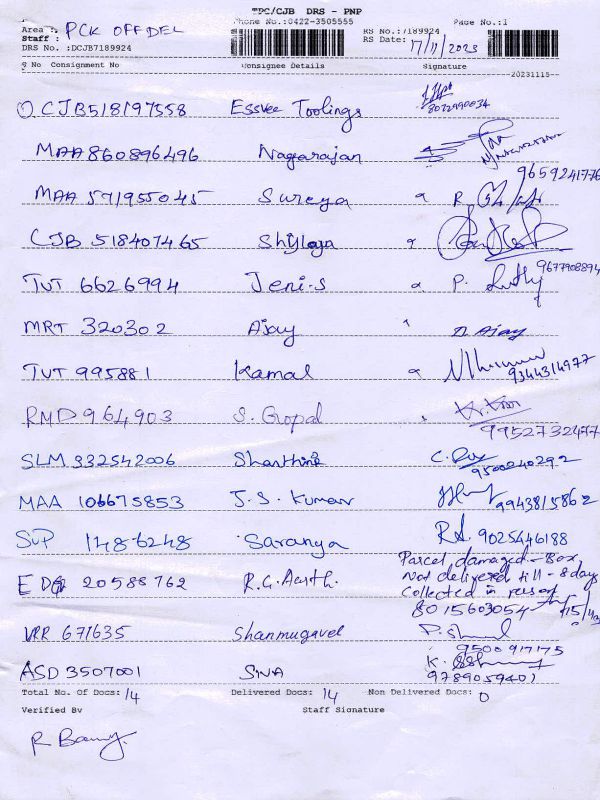 TPC/CJB DRS - PNP
Phone No.:0422-3505555 Page No.:1
Area : PCK OFFDEL RS No.:7189924
Staff : RS Date: 17/11/2023
DRS No. :DCJB7189924
S No Consignment No Consignee Details Signature
20231115
① CJB518197558 Essvee Toolings
8072990034
MAA860896496 Nagarajan
9659241776
MAA 571955045 Sureya
CJB 518407465 Shyloja
9677908894
TUT 6626994 Jeni.s P.
MRT 320302 Ajay n Ajay
TUT 995881 Kamal 9344314977
RMD 964903 S. Gopal
9952732477
SLM 332542006 Shanthini
9500240292
MAA 106675853 J.S. Kumar 9943815862
SUP 1486248 Saranya 9025446188
Parcel damaged - Box
ED 20588762 R.G. Not delivered till - 8 days
Collected in person
8015603054
VRR 671635 Shanmugavel P.
9500917175
ASD 3507001 SIVA K.
9789059401
Total No. Of Docs: 14 Delivered Docs: 14 Non Delivered Docs: 0
Verified By Staff Signature